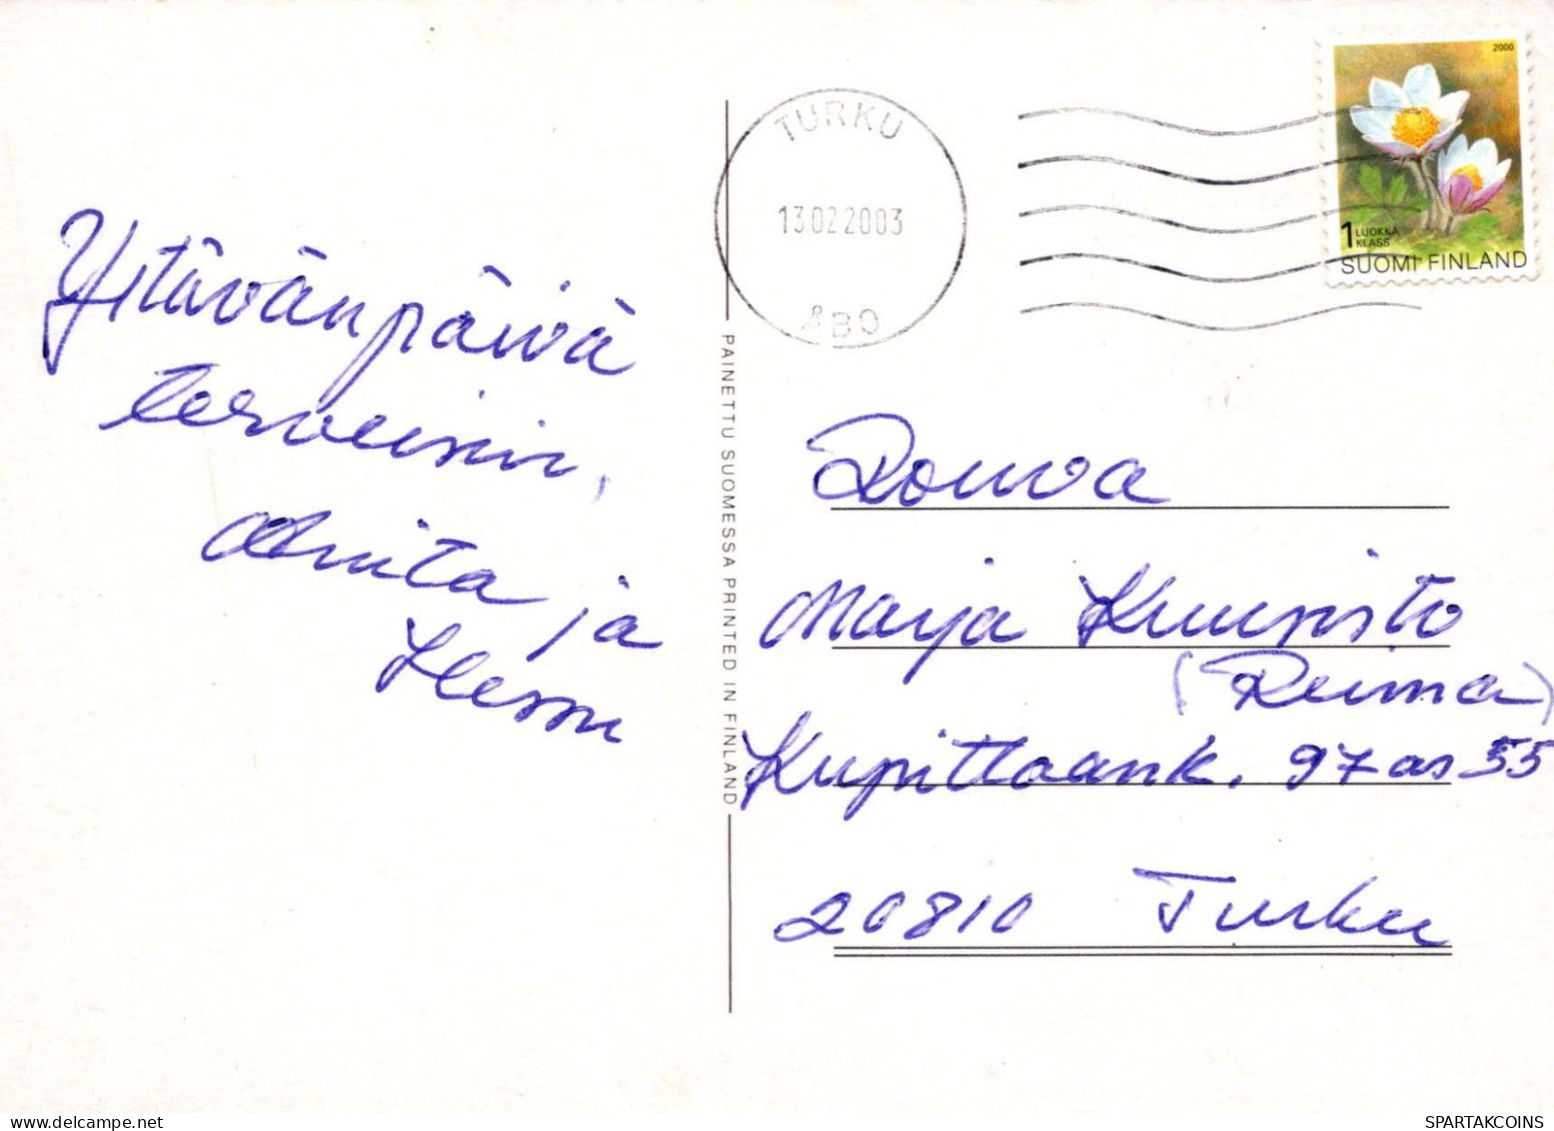 Ystävänpäivä
terveisin,
Anita ja
TURKU
13.02.2003
ÅBO
2000
1 LUOKKA
KLASS
SUOMI FINLAND
PAINETTU SUOMESSA PRINTED IN FINLAND
Rouva
Marja Kuusisto
(Reima)
Kupittaank. 97 as 55
20810 Turku
SPARTAKCOINS